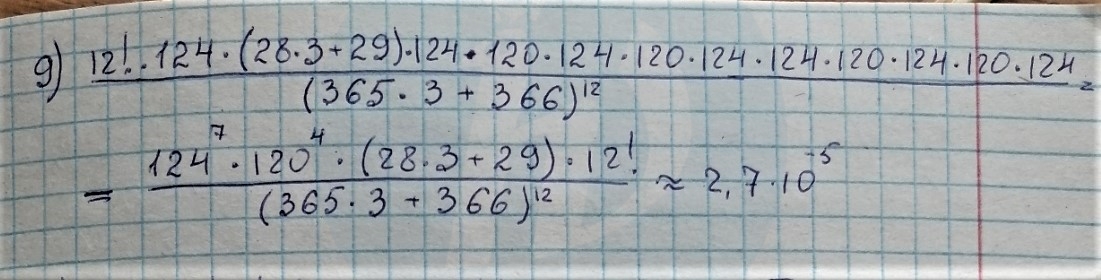 9) 12!·124·(28·3+29)·124·120·124·120·124·124·120·124·120·124 =
(365·3+366)¹²
= 124⁷·120⁴·(28·3+29)·12! ≈ 2,7·10⁻⁵
(365·3+366)¹²